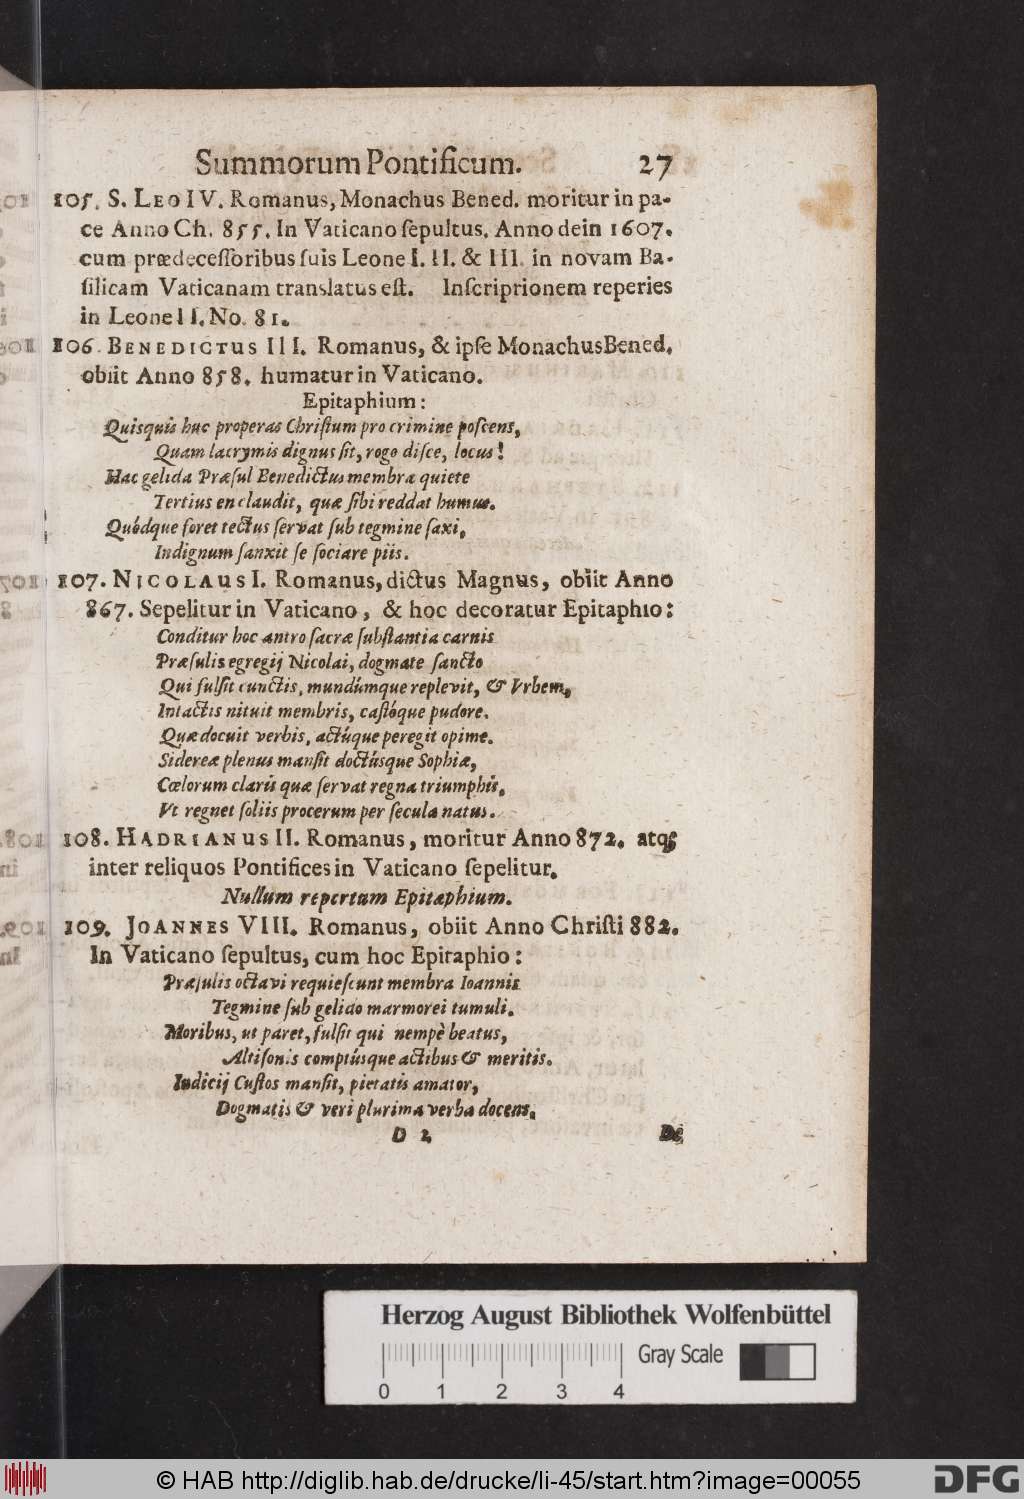 Summorum Pontificum. 27
105. S. LEO IV. Romanus, Monachus Bened. moritur in pa-
ce Anno Ch. 855. In Vaticano sepultus. Anno dein 1607.
cum prædecessoribus suis Leone I. II. & III. in novam Ba-
silicam Vaticanam translatus est. Inscriptionem reperies
in Leone II. No. 81.
106. BENEDICTUS III. Romanus, & ipse Monachus Bened.
obiit Anno 858. humatur in Vaticano.
Epitaphium:
Quisquis huc properas Christum pro crimine poscens,
Quam lacrymis dignus sit, rogo disce, locus!
Hac gelida Præsul Benedictus membra quiete
Tertius enclaudit, quæ sibi reddat humus.
Quódque foret tectus servat sub tegmine saxi,
Indignum sanxit se sociare piis.
107. NICOLAUS I. Romanus, dictus Magnus, obiit Anno
867. Sepelitur in Vaticano, & hoc decoratur Epitaphio:
Conditur hoc antro sacræ substantia carnis
Præsulis egregij Nicolai, dogmate sancto
Qui fulsit cunctis, mundúmque replevit, & Urbem,
Intactis nituit membris, castóque pudore.
Quæ docuit verbis, actúque peregit opime.
Sidereæ plenus mansit doctúsque Sophiæ,
Cœlorum claris quæ servat regna triumphis,
Ut regnet soliis procerum per secula natus.
108. HADRIANUS II. Romanus, moritur Anno 872. atq;
inter reliquos Pontifices in Vaticano sepelitur.
Nullum repertum Epitaphium.
109. JOANNES VIII. Romanus, obiit Anno Christi 882.
In Vaticano sepultus, cum hoc Epitaphio:
Præsulis octavi requiescunt membra Ioannis
Tegmine sub gelido marmorei tumuli.
Moribus, ut paret, fulsit qui nempè beatus,
Altisonis comptúsque actibus & meritis.
Iudicij Custos mansit, pietatis amator,
Dogmatis & veri plurima verba docens.
D 2 De
Herzog August Bibliothek Wolfenbüttel
Gray Scale
0 1 2 3 4
© HAB http://diglib.hab.de/drucke/li-45/start.htm?image=00055
DFG